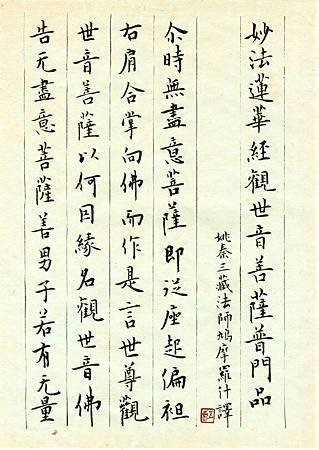 妙法蓮華經觀世音菩薩普門品
姚秦三藏法師鳩摩羅什譯
尒時無盡意菩薩即從座起偏袒
右肩合掌向佛而作是言世尊觀
世音菩薩以何因緣名觀世音佛
告无盡意菩薩善男子若有无量